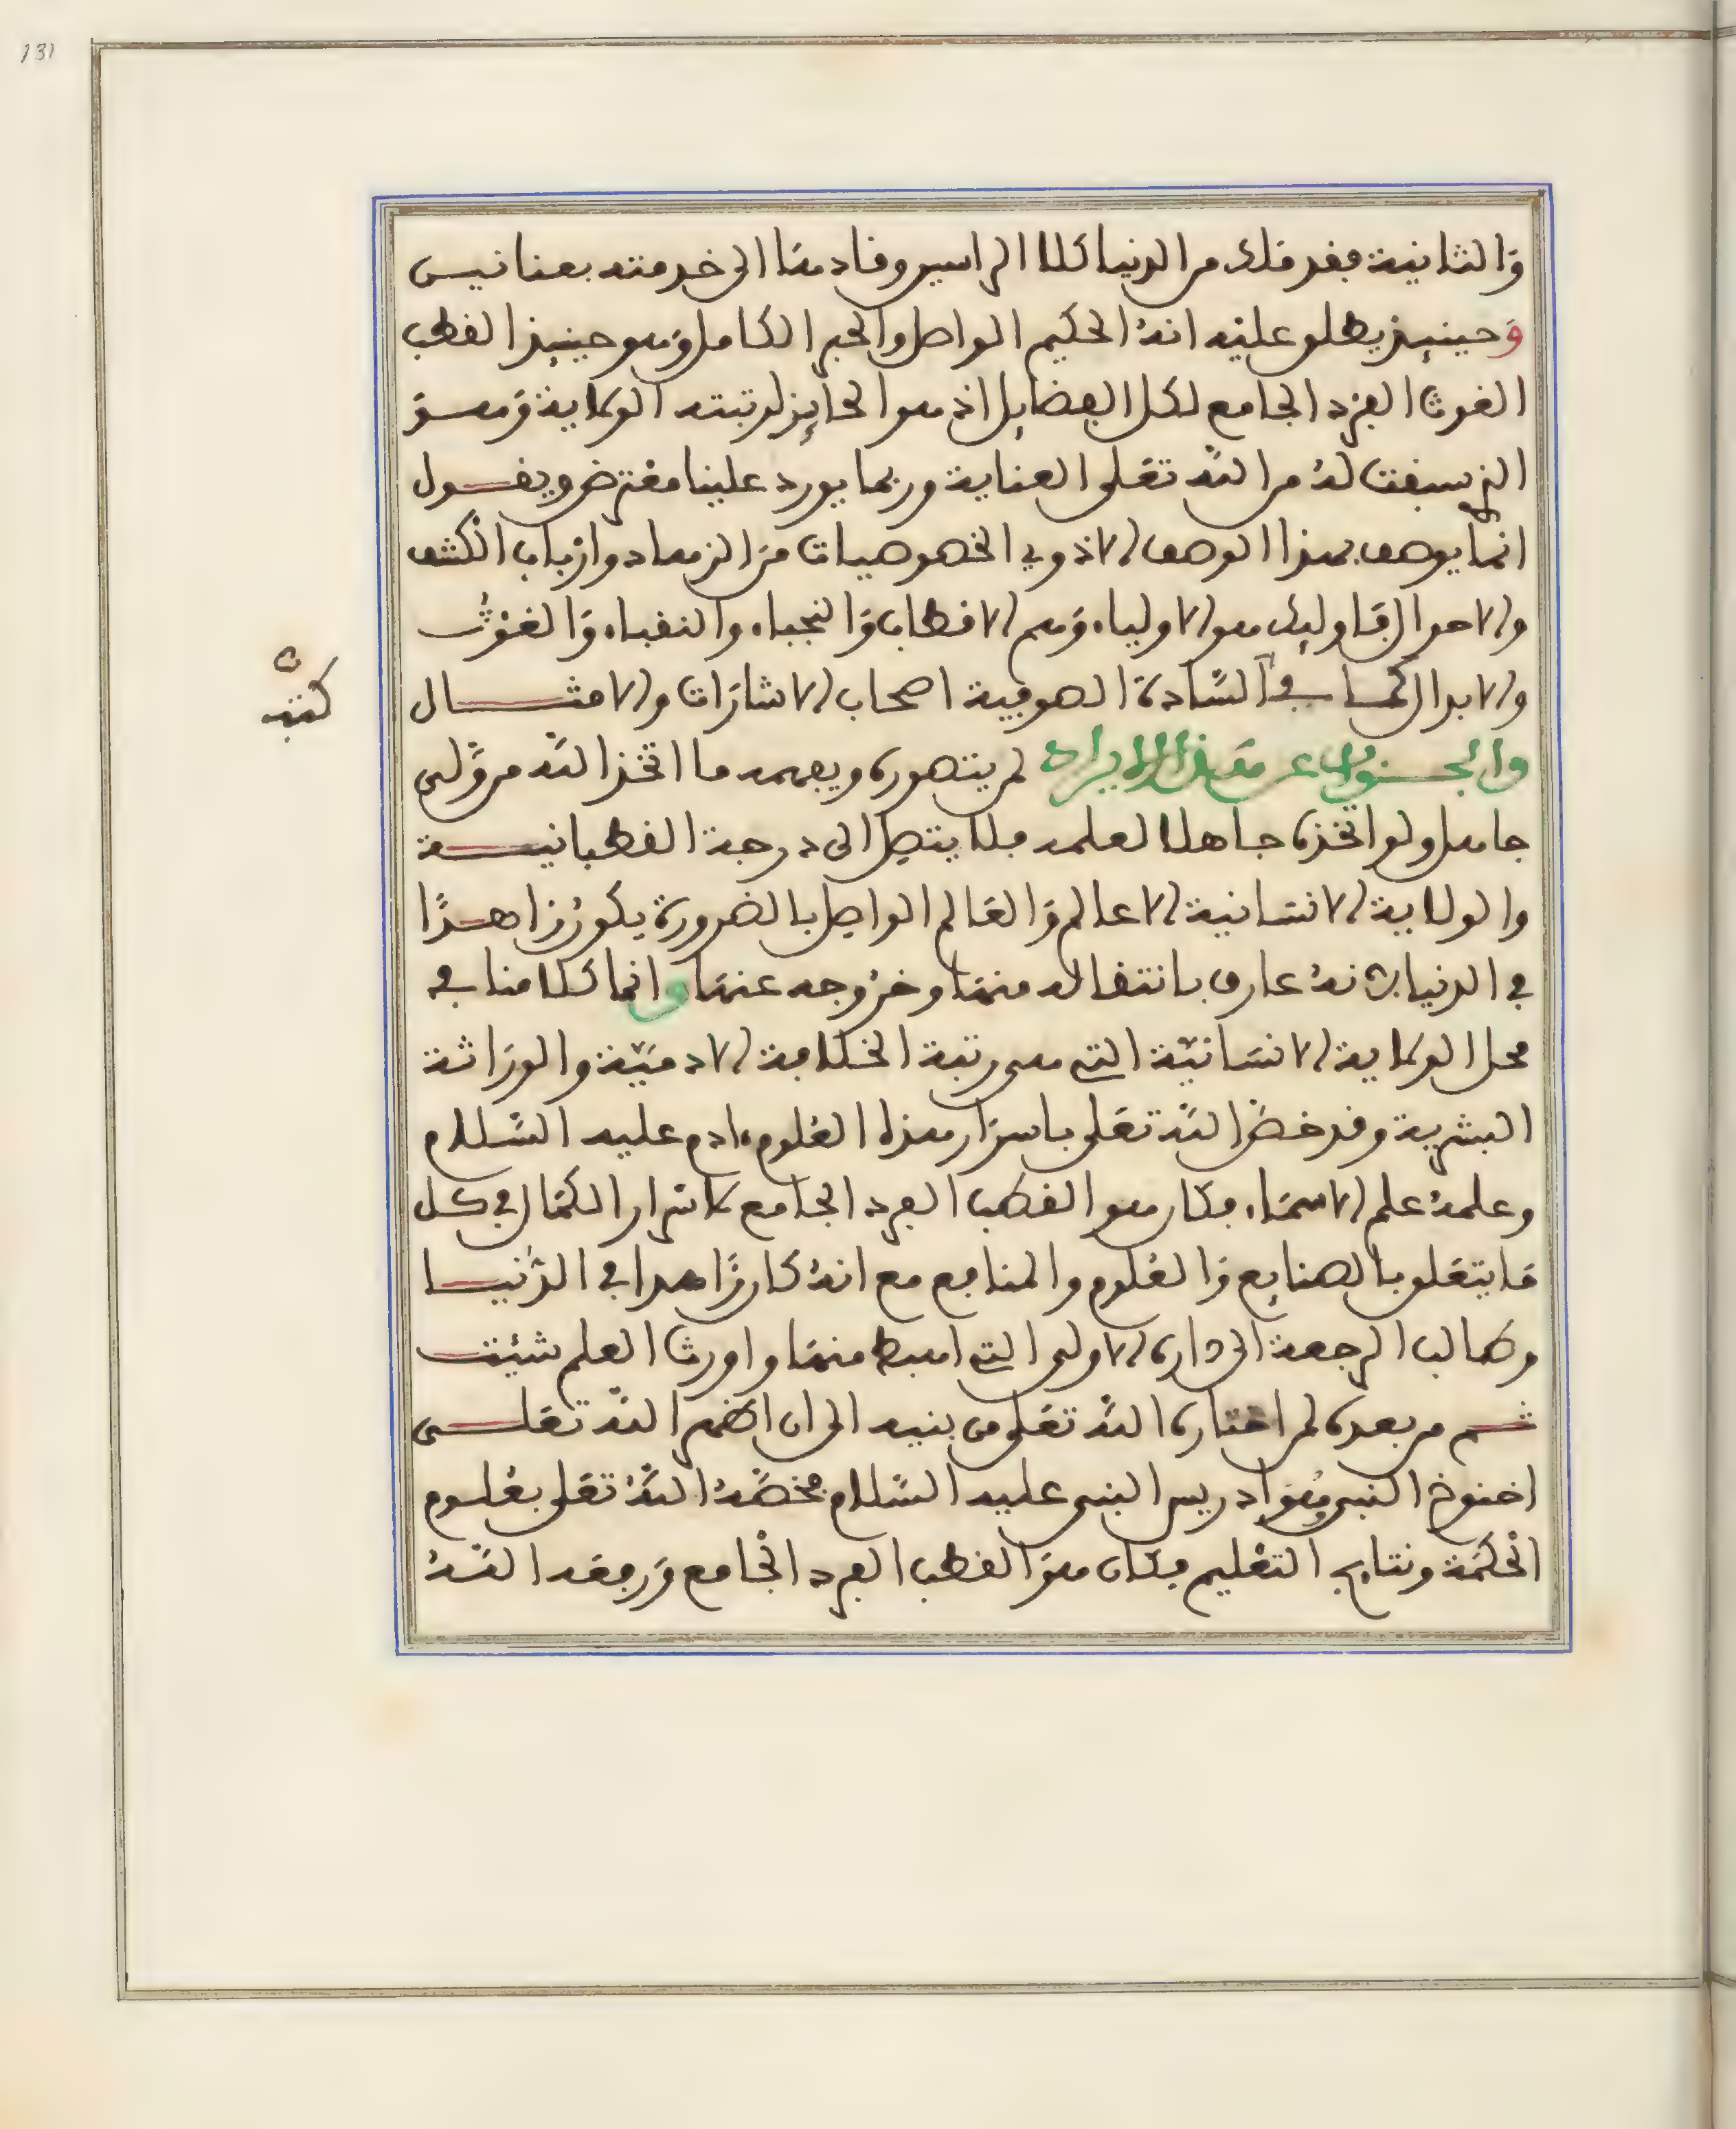 131
والثانية فقد ملك من الدنيا كلا الراسين وقادها الى خدمته بعنانين
وحينيذ يطلق عليه انه الحكيم الواصل والحبر الكامل وهو حينيذ القطب
الغوث الفرد الجامع لكل الفضايل اذ هو الحايز لرتبته الولاية وهو
الذي سبقت له من الله تعلى العناية وربما يورد علينا معترض ويقول
انما يوصف بهذا الوصف الا ذوي الخصوصيات من الزهاد وارباب الكشف
والاحوال فاوليك هو الاولياء وهم الاقطاب والنجباء والنقباء والغوث
والابدال كما في السادة الصوفية اصحاب الاشارات والامثال
كتبه
والجواب عن هذا الايراد لم يتصوره ويفهمه ما اتخذ الله من ولي
جاهل ولو اتخذه جاهلا لعلمه فلا يتصل الى درجة القطبانية
والولاية الانسانية الا عالم والعالم الواصل بالضرورة يكون زاهدا
في الدنيا لانه عارف بانتقاله منها وخروجه عنها وانما كلامنا في
محل الولاية الانسانية التي هي رتبة الخلافة الادمية والوراثة
البشرية وقد خص الله تعلى باسرار هذه العلوم ءادم عليه السلام
وعلمه علم الاسماء فكان هو القطب الفرد الجامع لاسرار الكمال في كل
ما يتعلق بالصنايع والعلوم والمنافع مع انه كان زاهدا في الدنيا
وطالب الرجعة الى داره الاولى التي اهبط منها واورث العلم شيئت
ثم من بعده لمن اختاره الله تعلى من بنيه الى ان اظهر الله تعلى
اخنوخ النبي وهو ادريس النبي عليه السلام فخصه الله تعلى بعلوم
الحكمة ونتايج التعليم فكان هو القطب الفرد الجامع ورفعه الله